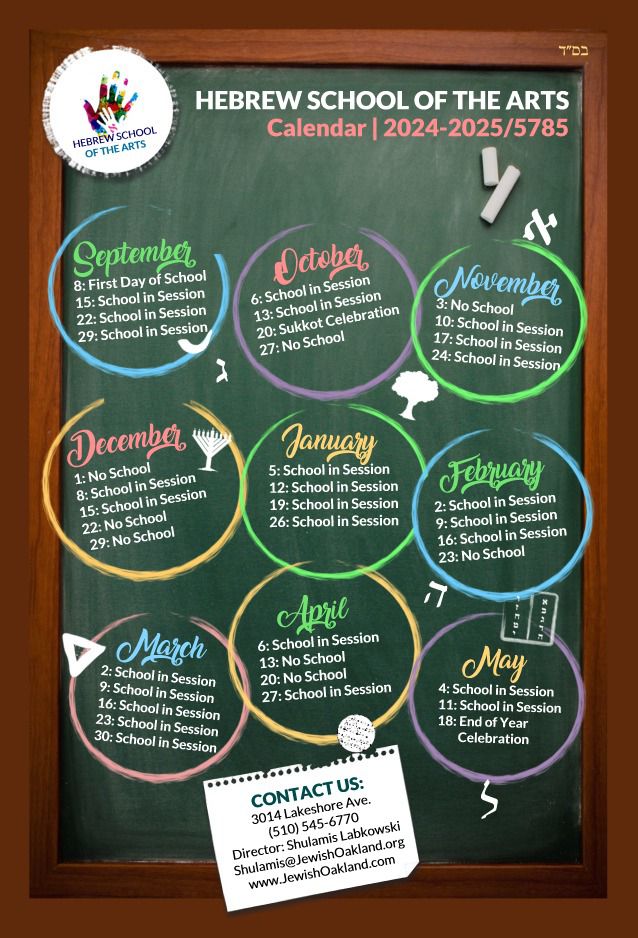 בס״ד
HEBREW SCHOOL
OF THE ARTS
HEBREW SCHOOL OF THE ARTS
Calendar | 2024-2025/5785
א
September
8: First Day of School
15: School in Session
22: School in Session
29: School in Session
October
6: School in Session
13: School in Session
20: Sukkot Celebration
27: No School
November
3: No School
10: School in Session
17: School in Session
24: School in Session
ג
December
1: No School
8: School in Session
15: School in Session
22: No School
29: No School
January
5: School in Session
12: School in Session
19: School in Session
26: School in Session
February
2: School in Session
9: School in Session
16: School in Session
23: No School
ה
March
2: School in Session
9: School in Session
16: School in Session
23: School in Session
30: School in Session
April
6: School in Session
13: No School
20: No School
27: School in Session
May
4: School in Session
11: School in Session
18: End of Year
Celebration
ל
CONTACT US:
3014 Lakeshore Ave.
(510) 545-6770
Director: Shulamis Labkowski
Shulamis@JewishOakland.org
www.JewishOakland.com